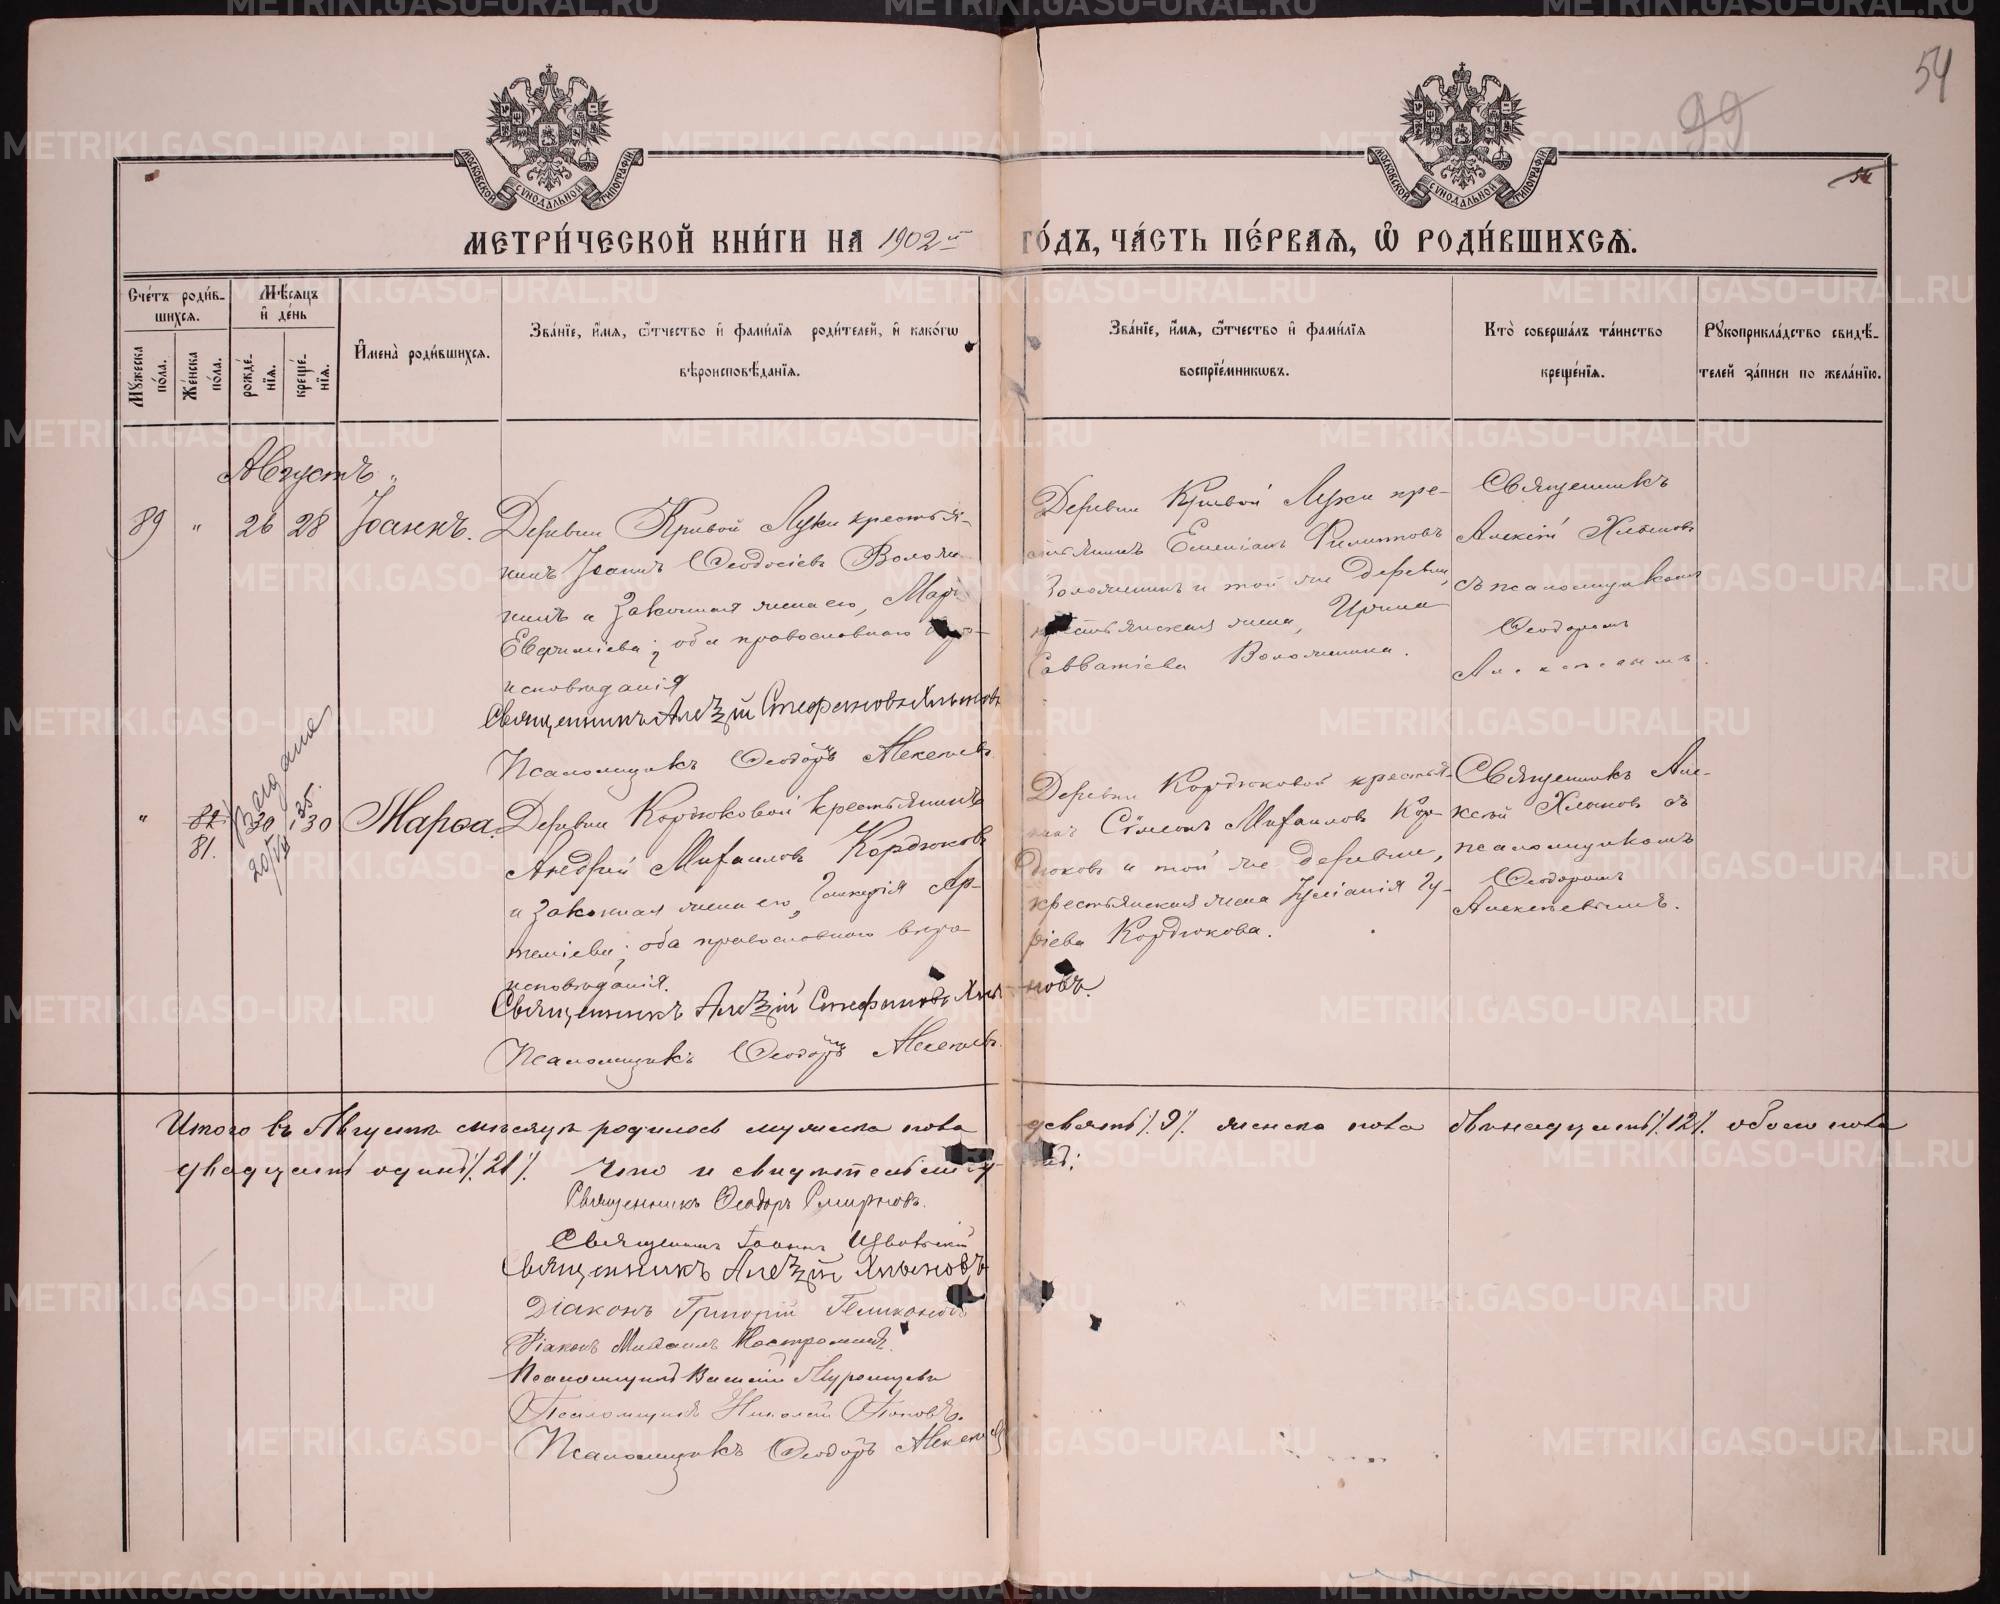 54
99
54
МОСКОВСКОЙ СѴНОДАЛЬНОЙ ТИПОГРАФІИ
МОСКОВСКОЙ СѴНОДАЛЬНОЙ ТИПОГРАФІИ
МЕТРИ́ЧЕСКОЙ КНИ́ГИ НА 1902й ГО́ДЪ, ЧА́СТЬ ПЕ́РВАЯ, Ѡ҆ РОДИ́ВШИХСЯ.
Сче́тъ роди́вшихся.
Мꙋ́жеска по́ла.
Же́нска по́ла.
Мѣ́сяцъ и҆ де́нь
рожде́нїя.
креще́нїя.
И҆мена̀ роди́вшихся.
Зва́нїе, и҆́мя, ѻ҆́тчество и҆ фами́лїя роди́телей, и҆ како́гѡ
вѣроисповѣ́данїя.
Зва́нїе, и҆́мя, ѻ҆́тчество и҆ фами́лїя
воспрїе́мникѡвъ.
Кто̀ соверша́лъ та́инство
креще́нїя.
Рꙋкоприкла́дство свидѣ́телей за́писи по жела́нїю.
Августъ
89 " 26 28 Іоаннъ.
Деревни Кривой Луки крестья-
нинъ Іоаннъ Ѳеодосіевъ Воложе-
нинъ и законная жена его, Марі
Евфиміева; оба православнаго
исповѣданія
Священникъ Алексій Стефановъ Хлыновъ
Псаломщикъ Ѳеодоръ Алексѣевъ
Деревни Кривой Луки кре-
стьянинъ Емеліанъ Филиппов
Воложенинъ и той же деревни,
крестьянская жена, Ирина
Савватіева Воложенина.
Священникъ
Алексій Хлыновъ
съ псаломщикомъ
Ѳеодоромъ
" 82 81. 30 30 Марѳа.
Выдана
35.
20/VIII
Деревни Кордюковой крестьянинъ
Андрей Михаиловъ Кордюковъ
и законная жена его, Гликерія Ар-
теміева; оба православнаго вѣро
исповѣданія.
Священникъ Алексій Стефановъ Хлыновъ.
Псаломщикъ Ѳеодоръ Алексѣевъ.
Деревни Кордюковой крестья-
нинъ Сѵмеонъ Михаиловъ Кор-
дюковъ и той же деревни,
крестьянская жена Іуліанія Гу-
ріева Кордюкова.
Священникъ Але-
ксій Хлыновъ съ
псаломщикомъ
Ѳеодоромъ
Алексѣевымъ.
Итого въ Августѣ мѣсяцѣ родилось мужеска пола девять ٪ 9 ٪ женска пола двѣнадцать ٪ 12 ٪ обоего пола
двадцать одинъ ٪ 21 ٪ Что и свидѣтельствуютъ:
Священникъ Ѳеодоръ Смирновъ.
Священникъ Іоаннъ
Священникъ Алексій Хлыновъ
Діаконъ Григорій Геликоновъ
Діаконъ Михаилъ Костроминъ.
Псаломщикъ Василій Муромцевъ
Псаломщикъ Николай Поповъ.
Псаломщикъ Ѳеодоръ Алексѣевъ
METRIKI.GASO-URAL.RU